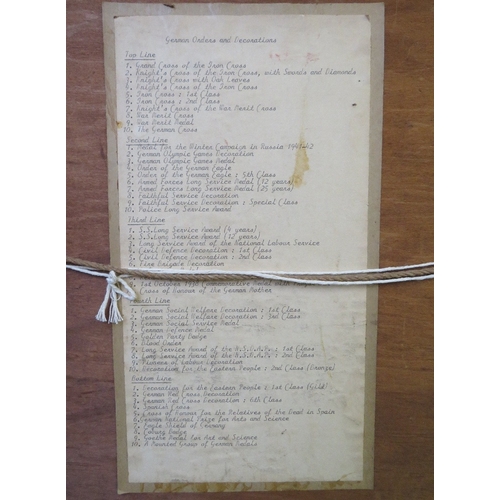 German Orders and Decorations
Top Line
1. Grand Cross of the Iron Cross
2. Knight's Cross of the Iron Cross, with Swords and Diamonds
3. Knight's Cross with Oak Leaves
4. Knight's Cross of the Iron Cross
5. Iron Cross : 1st Class
6. Iron Cross : 2nd Class
7. Knight's Cross of the War Merit Cross
8. War Merit Cross
9. War Merit Medal
10. The German Cross
Second Line
1. Medal for the Winter Campaign in Russia 1941-42
2. German Olympic Games Decoration
3. German Olympic Games Medal
4. Order of the German Eagle
5. Order of the German Eagle : 5th Class
6. Armed Forces Long Service Medal (12 years)
7. Armed Forces Long Service Medal (25 years)
8. Faithful Service Decoration
9. Faithful Service Decoration : Special Class
10. Police Long Service Award
Third Line
1. S.S. Long Service Award (4 years)
2. S.S. Long Service Award (12 years)
3. Long Service Award of the National Labour Service
4. Civil Defence Decoration : 1st Class
5. Civil Defence Decoration : 2nd Class
6. Fire Brigade Decoration
1st October 1938 Commemorative Medal with
Cross of Honour of the German Mother
Fourth Line
1. German Social Welfare Decoration : 1st Class
2. German Social Welfare Decoration : 3rd Class
3. German Social Service Medal
4. German Defence Medal
5. Golden Party Badge
6. Blood Order
7. Long Service Award of the N.S.D.A.P. : 1st Class
8. Long Service Award of the N.S.D.A.P. : 2nd Class
9. Pioneer of Labour Decoration
10. Decoration for the Eastern People : 2nd Class (Bronze)
Bottom Line
1. Decoration for the Eastern People : 1st Class (Gold)
2. German Red Cross Decoration
3. German Red Cross Decoration : 4th Class
4. Spanish Cross
5. Cross of Honour for the Relatives of the Dead in Spain
6. German National Prize for Arts and Science
7. Eagle Shield of Germany
8. Coburg Badge
9. Goethe Medal for Art and Science
10. A Mounted Group of German Medals